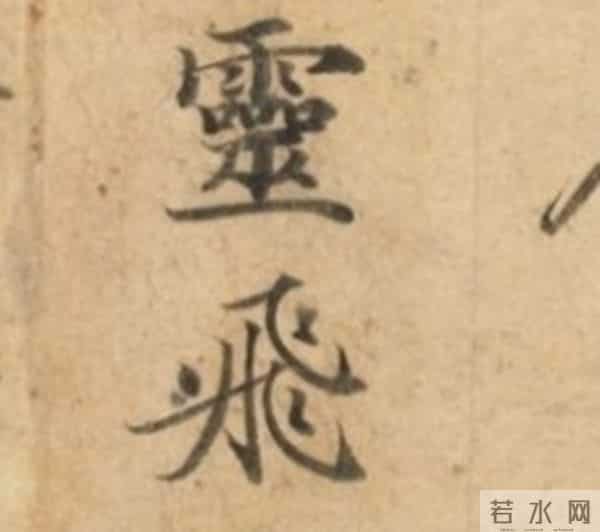 靈飛
若水网